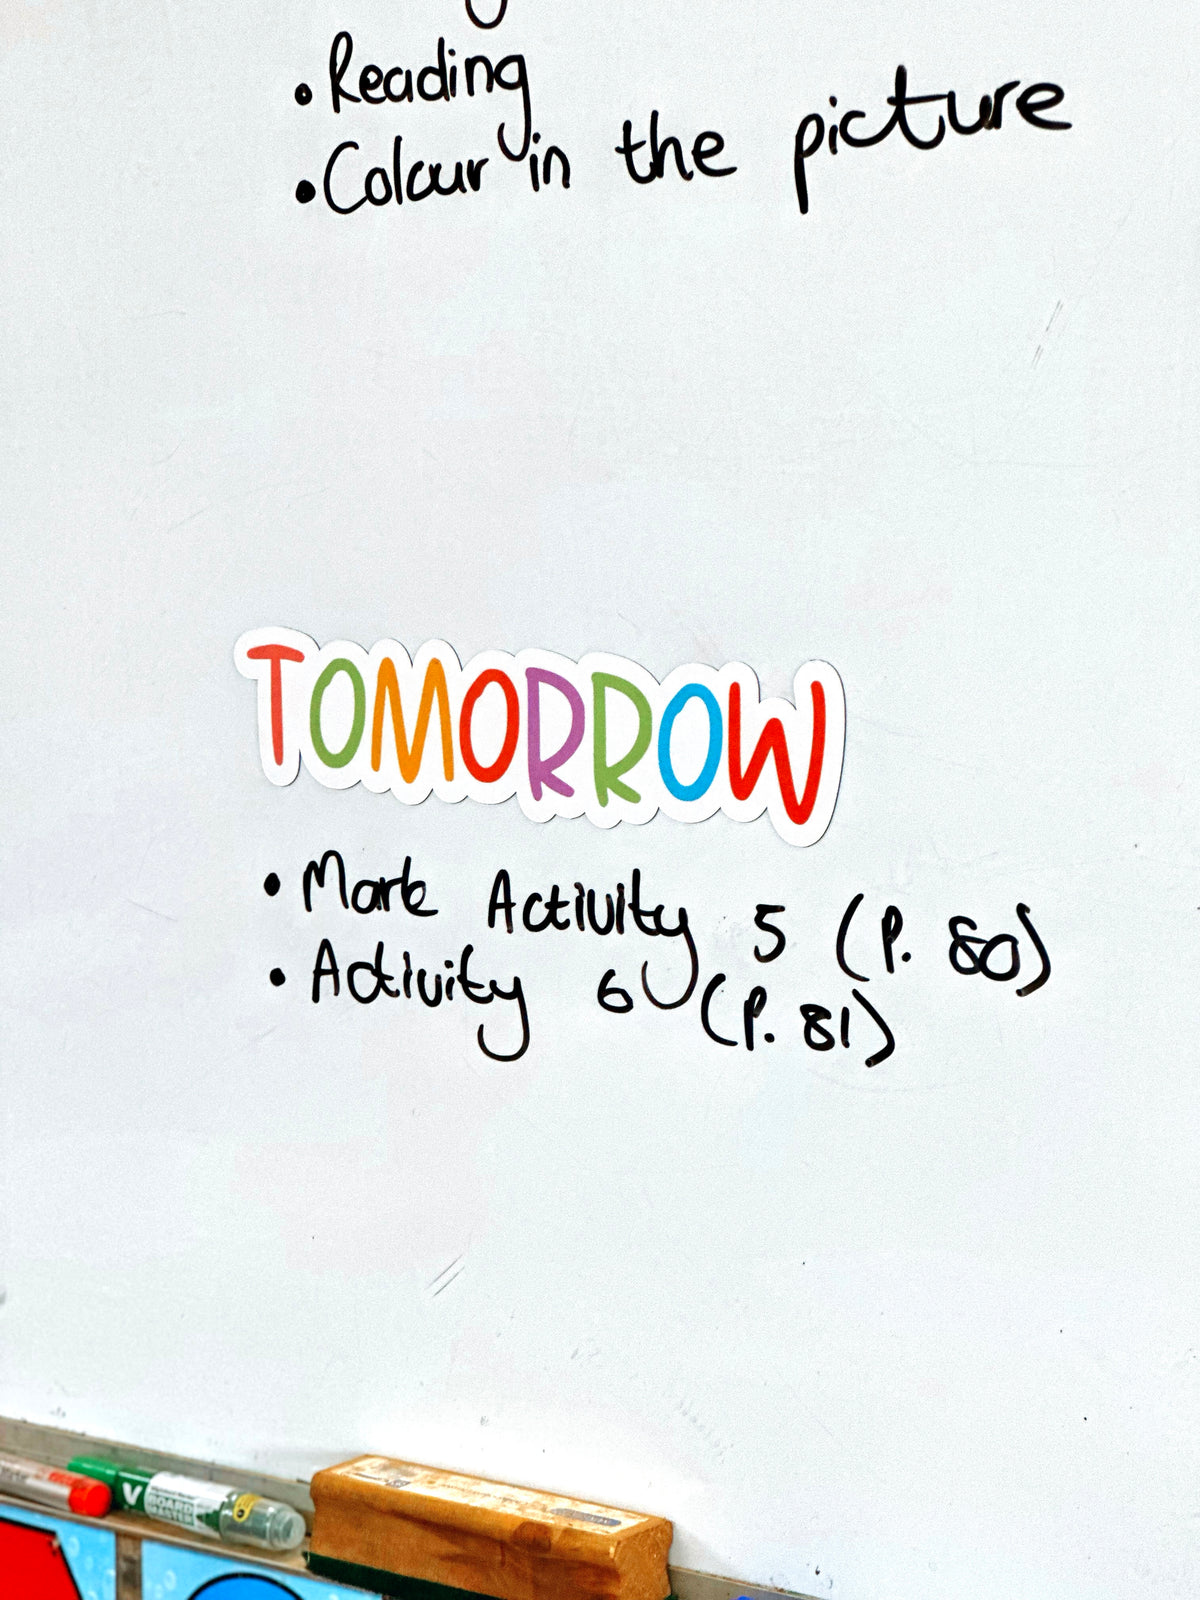 • Reading
• Colour in the picture
TOMORROW
• Mark Activity 5 (P. 80)
• Activity 6 (P. 81)
V BOARD MASTER